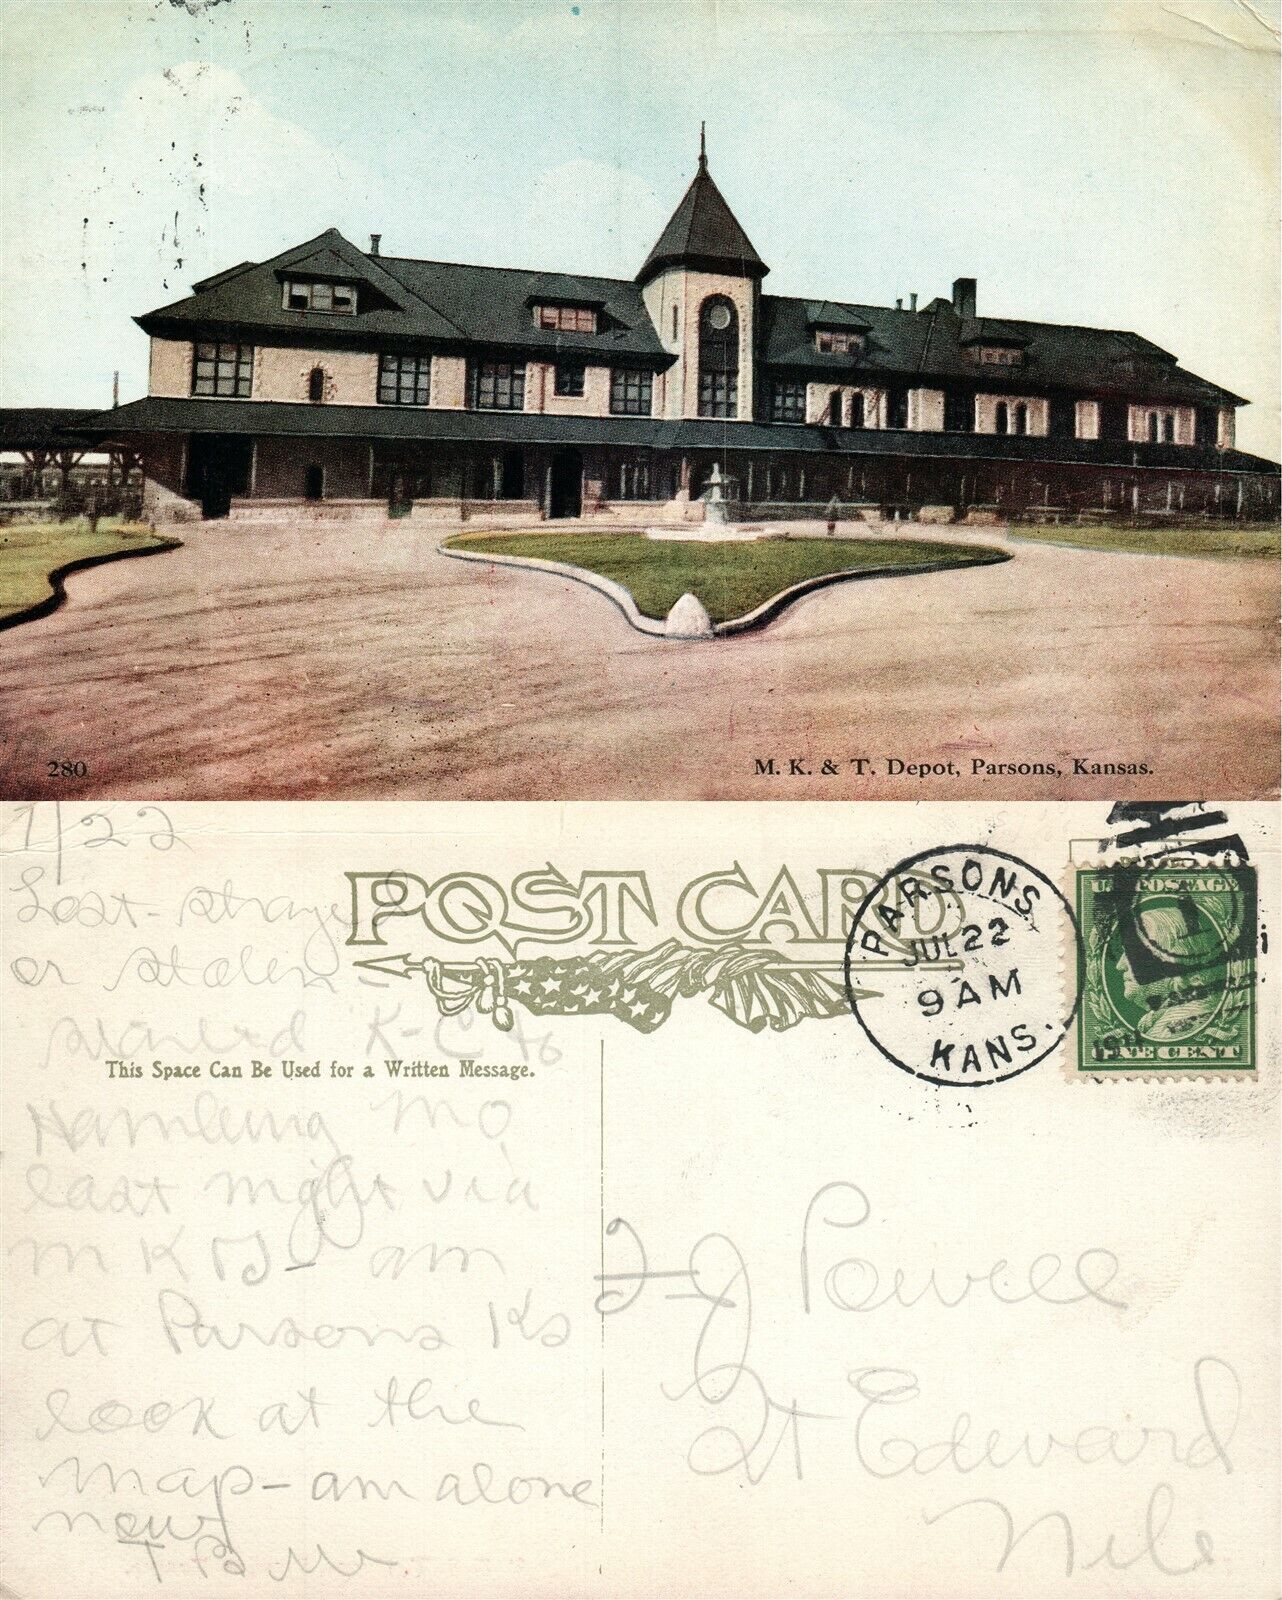 280
M. K. & T. Depot, Parsons, Kansas.
7/22
Lost-strayed
or stolen
started K-C to
Hamling Mo
last night via
M K & T - am
at Parsons Ks
look at the
map - am alone
now
POST CARD
This Space Can Be Used for a Written Message.
PARSONS
JUL 22
9 AM
KANS.
1911
U.S. POSTAGE
1
ONE CENT
F J Powell
St Edward
Neb